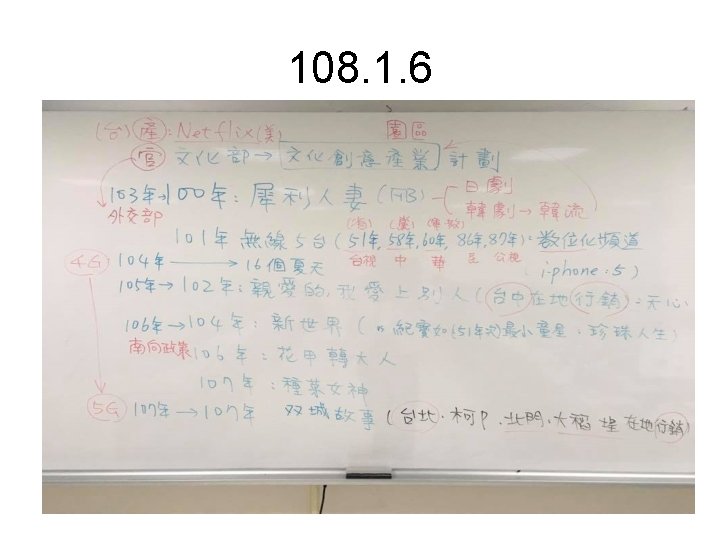 108. 1. 6
(台) 產: Netflix(美) 園區
官 文化部→ 文化創意產業 計劃
103年→100年: 犀利人妻 (FB) 日劇
外交部 韓劇→韓流
(省) (黨) (軍·教)
101年 無線5台 (51年, 58年, 60年, 86年, 87年): 數位化頻道
台視 中 華 民 公視
4G: 104年 → 16個夏天 (i-phone: 5)
105年→102年: 親愛的, 我愛上別人 (台中在地行銷): 天心
106年→104年: 新世界 ( 紀寶如(51年次)最小童星、珍珠人生)
南向政策 106年: 花甲轉大人
107年: 種菜女神
5G 107年→107年 双城故事 (台北·柯P、北門、大稻埕 在地行銷)